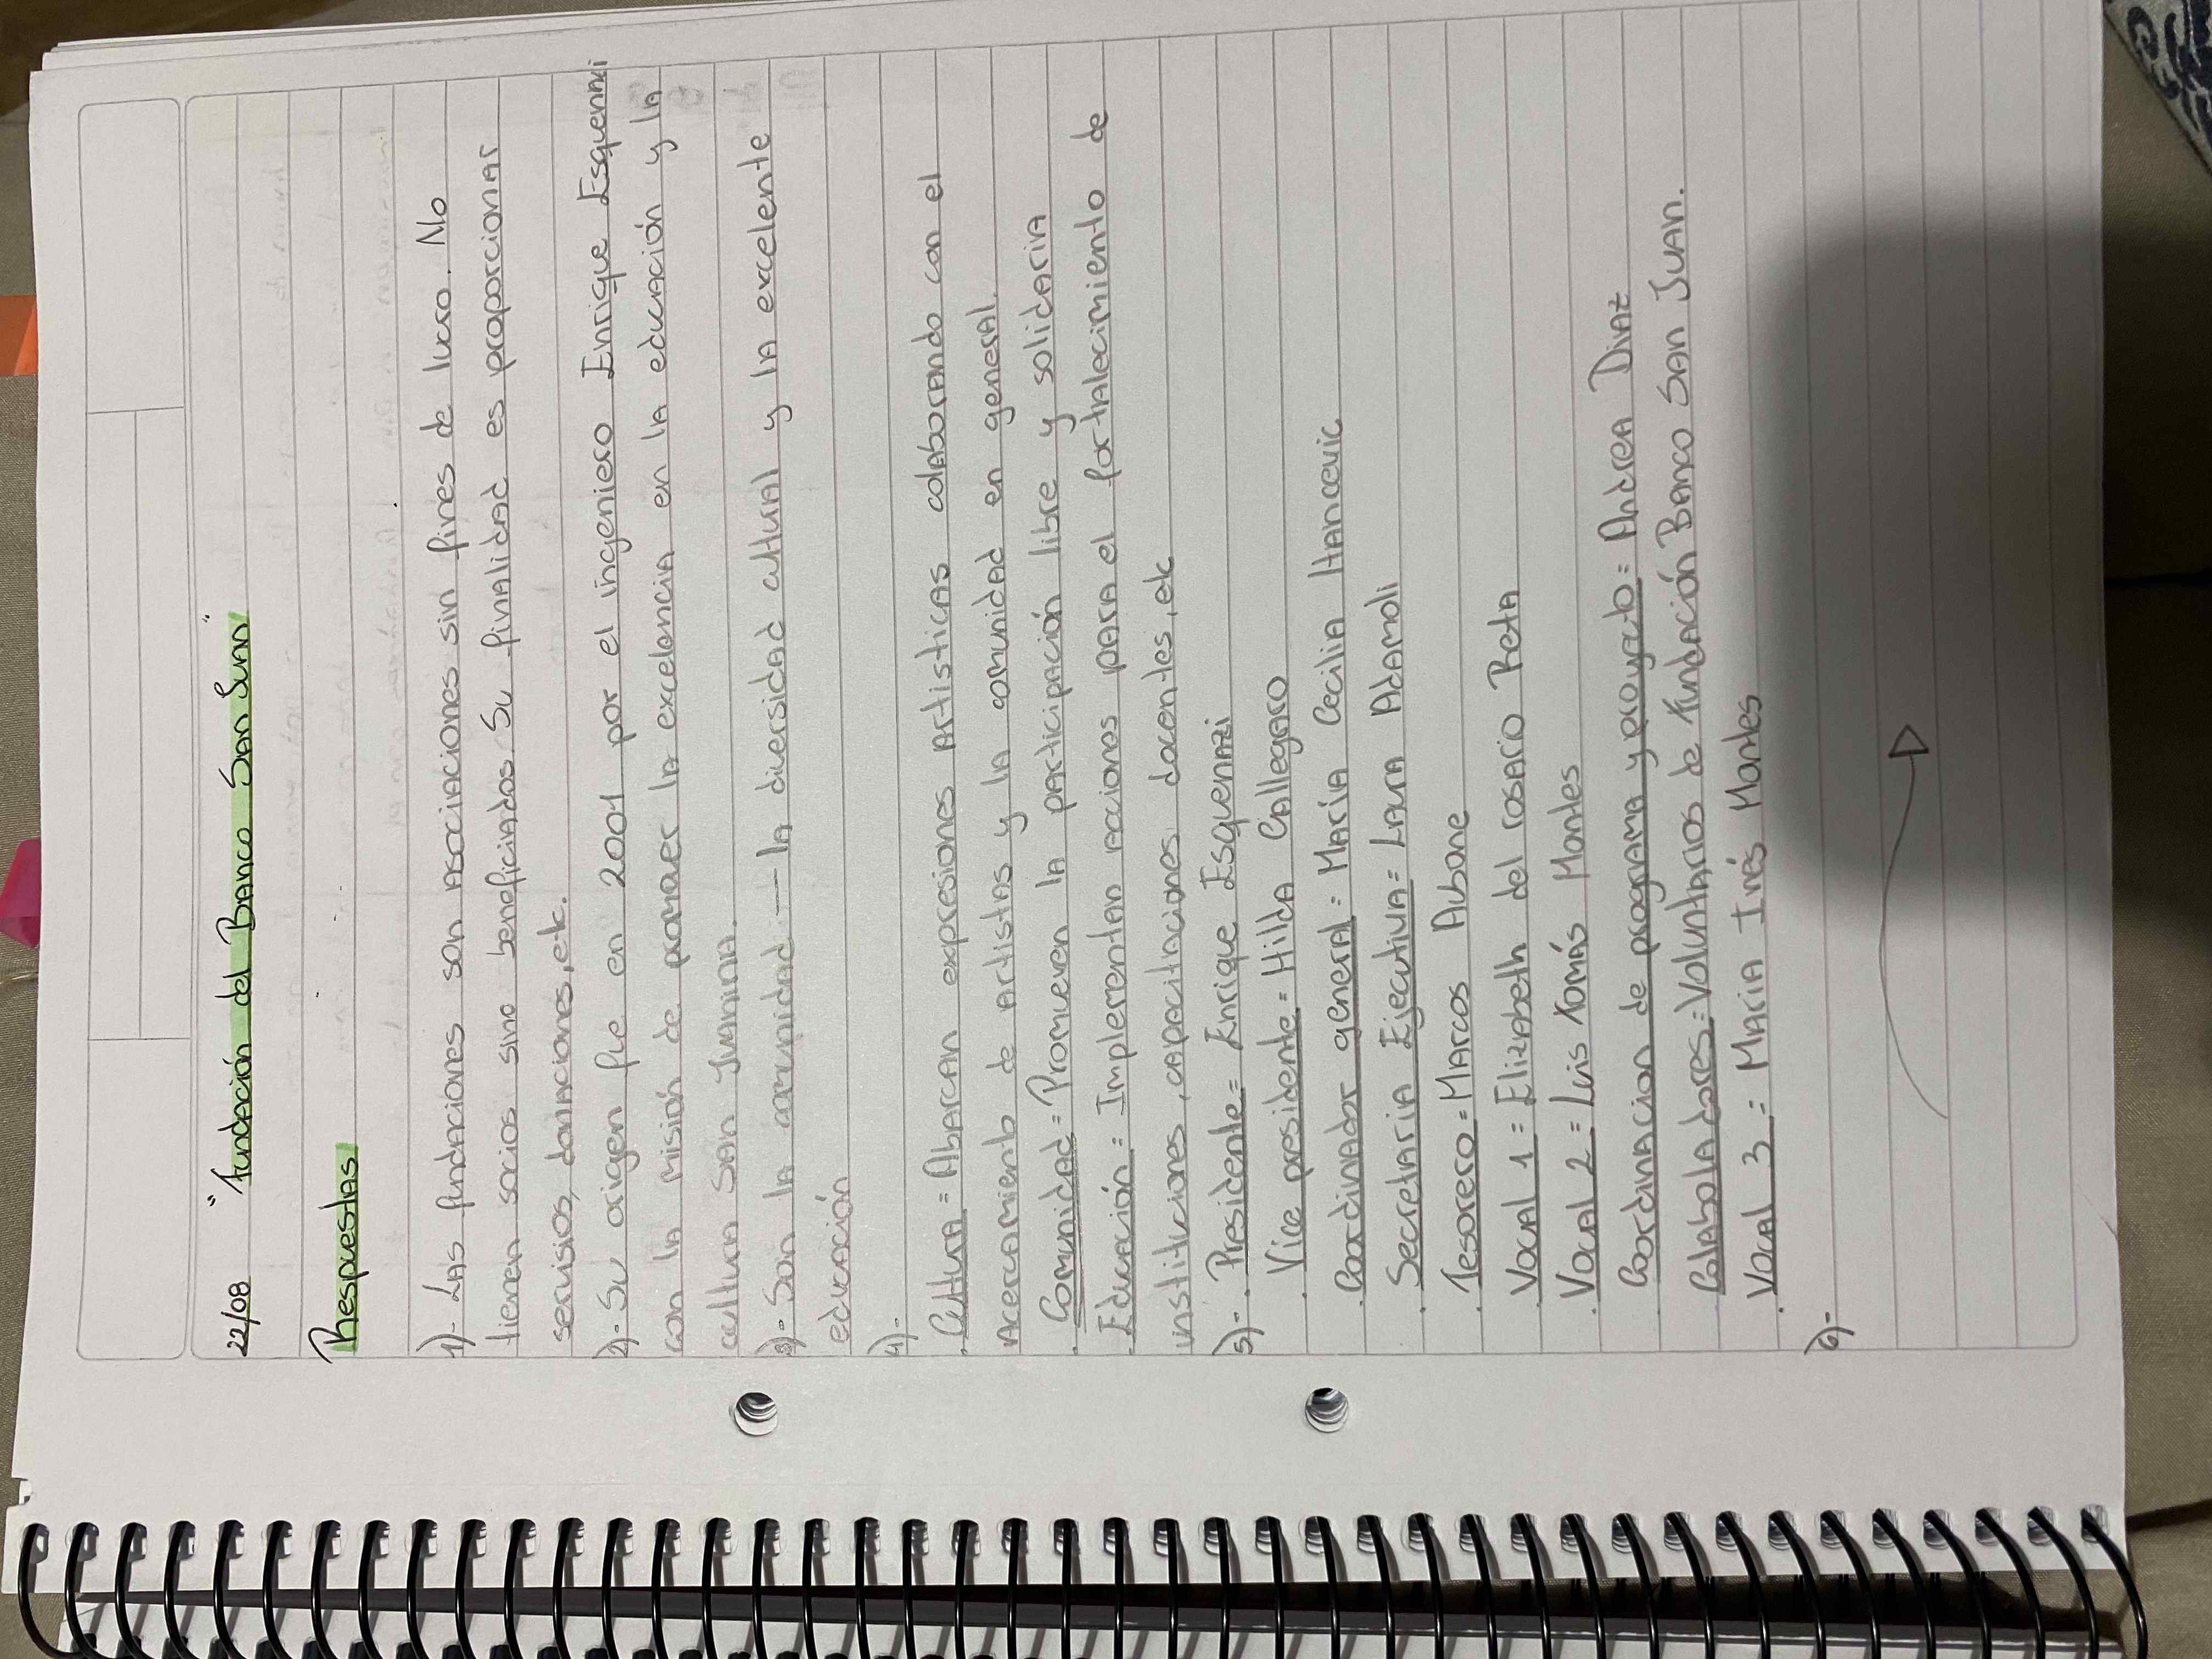 22/08 "Fundación del Banco San Juan"
Respuestas
1)- Las fundaciones son asociaciones sin fines de lucro. No
tienen socios sino beneficiados. Su finalidad es proporcionar
servisios, donaciones, etc.
2)- Su origen fue en 2001 por el ingeniero Enrique Esquenazi
con la misión de promover la excelencia en la educación y la
cultura San Juanina.
3)- Son la comunidad --- la diversidad cultural y la excelente
educación
4)-
. Cultura = Abarcan expresiones Artisticas colaborando con el
Acercamiento de artistas y la comunidad en general.
. Comunidad = Promueven la participación libre y solidaria
Educación = Implementan acciones para el fortalecimiento de
instituciones, capacitaciones docentes, etc
5)- . Presidente = Enrique Esquenazi
. Vice presidente = Hilda Callegaro
. Coordinador general = María Cecilia Hancevic
. Secretaria Ejecutiva = Laura Adamoli
. Tesorero = Marcos Aubone
. Vocal 1 = Elizabeth del rosario Reta
. Vocal 2 = Luis Tomás Montes
. Coordinacion de programa y proyecto = Andrea Diaz
Colaboladores = Voluntarios de Fundación Banco San Juan.
. Vocal 3 = Maria Inés Montes
6)-